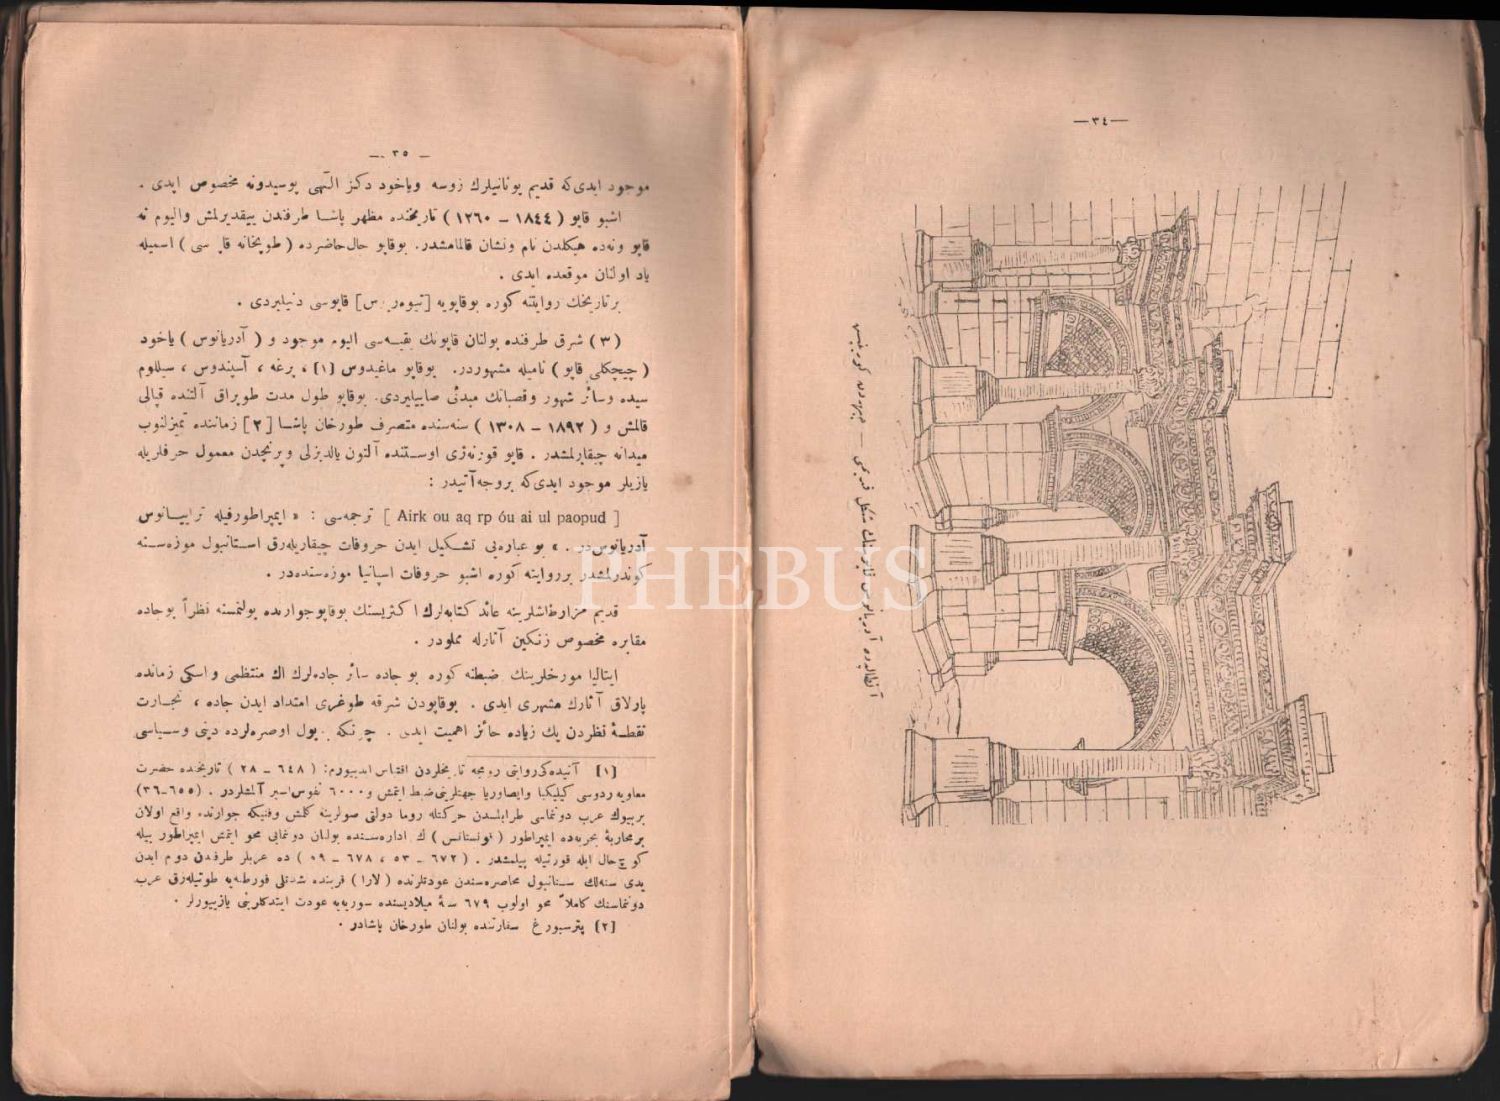 —٣٤—
آنطاليه‌ده آدريانوس قاپوسنك شكل قديمى — جبهه‌دن كورينيش
— ٣٥ —
موجود ايدى‌كه قديم يونانيلرك زوسه وياخود دكز الٓهى پوسيدونه مخصوص ايدى .
اشبو قاپو ( ١٨٤٤ – ١٢٦٠ ) تاريخنده مظهر پاشا طرفندن ييقديرلمش واليوم نه
قاپو ونه‌ده هيكلدن نام ونشان قالمامشدر. بوقاپو حال‌حاضرده ( طوپخانه قاپوسى ) اسميله
ياد اولنان موقعده ايدى .
برتاريخك روايتنه كوره بوقاپويه [تيوه‌ريوس] قاپوسى دنيليردى .
( ٣ ) شرق طرفنده بولنان قاپونك بقيه‌سى اليوم موجود و ( آدريانوس ) ياخود
( چيچكلى قاپو ) ناميله مشهوردر. بوقاپو ماغيدوس [١] ، برغه ، آسپندوس ، سيللوم
سيده وسائر شهور وقصباتك مبدئى صاييليردى. بوقاپو طول مدت طوپراق آلتنده قپالى
قالمش و ( ١٨٩٢ – ١٣٠٨ ) سنه‌سنده متصرف طورخان پاشا [٢] زماننده تميزلنوب
ميدانه چيقارلمشدر . قاپو قورنه‌زى اوستنده آلتون يالديزلى وپرنجدن معمول حرفلريله
يازيلر موجود ايدى‌كه بروجه‌آتيدر :
[ Airk ou aq rp óu ai ul paopud ] ترجمه‌سى : « ايمپراطورقيله ترايانوس
آدريانوس‌در . » بو عباره‌يى تشكيل ايدن حروفات چيقاريله‌رق استانبول موزه‌سنه
كوندرلمشدر برروايته كوره اشبو حروفات اسپانيا موزه‌سنده‌در .
قديم مزارطاشلرينه عائد كتابه‌لرك اكثريسنك بوقاپوجوارنده بولنمسنه نظراً بوجاده
مقابره مخصوص زنكين آثارله مملودر .
ايتاليا مورخلرينك ضبطنه كوره بو جاده سائر جاده‌لرك اك منتظمى واسكى زمانده
پارلاق آثارك مشهرى ايدى . بوقاپودن شرقه طوغرى امتداد ايدن جاده ، تجارت
نقطهٔ نظردن پك زياده حائز اهميت ايدى . چونكه بويول اوصره‌لرده دينى وسياسى
[١] آتيده‌كى‌روايتى رومجه تاريخلردن اقتباس ايدييورم: ( ٦٤٨ – ٢٨ ) تاريخنده حضرت
معاويه‌ردوسى كيليكيا وايصاوريا جهتلرينى‌ضبط ايتمش و٦٠٠٠ نفوس‌اسير آلمشلردر . (٦٥٥–٣٦)
بربيوك عرب دونماسى طرابلسدن حركتله روما دولتى صولرينه كلمش وفنيكه جوارنده واقع اولان
برمحاربهٔ بحريه‌ده ايمپراطور ( قونستانس ) ك اداره‌سنده بولنان دونمايى محو ايتمش ايمپراطور بيله
كوچ‌حال ايله قورتيله بيلمشدر . ( ٦٧٢ – ٥٣ ، ٦٧٨ – ٥٩ ) ده عربلر طرفندن دوام ايدن
يدى سنه‌لك ستانبول محاصره‌سندن عودتلرنده ( لارا ) قربنده شدتلى فورطنه‌يه طوتيله‌رق عرب
دونماسنك كاملاً محو اولوب ٦٧٩ سنهٔ ميلاديسنده سوريه‌يه عودت ايتدكلرينى يازييورلر .
[٢] پترسبورغ سفارتنده بولنان طورخان پاشادر .
PHEBUS